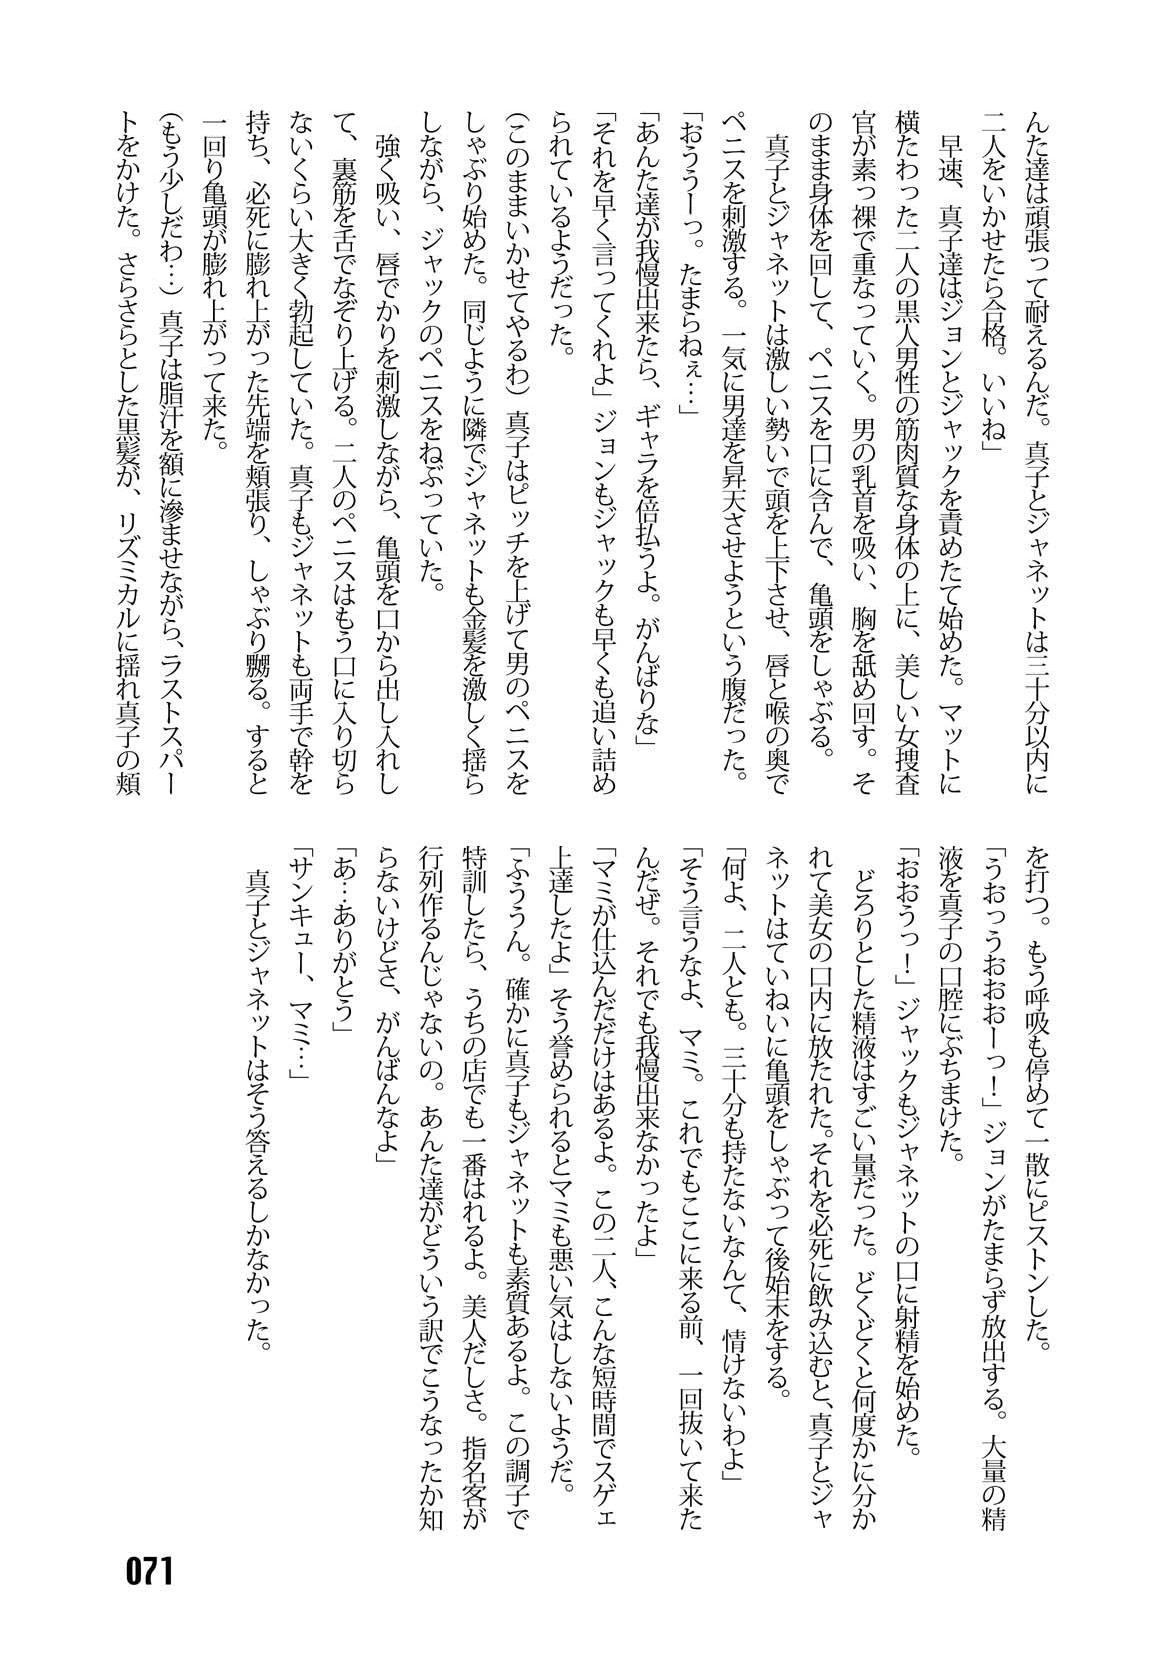 んた達は頑張って耐えるんだ。真子とジャネットは三十分以内に
二人をいかせたら合格。いいね」
　早速、真子達はジョンとジャックを責めたて始めた。マットに
横たわった二人の黒人男性の筋肉質な身体の上に、美しい女捜査
官が素っ裸で重なっていく。男の乳首を吸い、胸を舐め回す。そ
のまま身体を回して、ペニスを口に含んで、亀頭をしゃぶる。
　真子とジャネットは激しい勢いで頭を上下させ、唇と喉の奥で
ペニスを刺激する。一気に男達を昇天させようという腹だった。
「おううーっ。たまらねぇ…」
「あんた達が我慢出来たら、ギャラを倍払うよ。がんばりな」
「それを早く言ってくれよ」ジョンもジャックも早くも追い詰め
られているようだった。
（このままいかせてやるわ）真子はピッチを上げて男のペニスを
しゃぶり始めた。同じように隣でジャネットも金髪を激しく揺ら
しながら、ジャックのペニスをねぶっていた。
　強く吸い、唇でかりを刺激しながら、亀頭を口から出し入れし
て、裏筋を舌でなぞり上げる。二人のペニスはもう口に入り切ら
ないくらい大きく勃起していた。真子もジャネットも両手で幹を
持ち、必死に膨れ上がった先端を頬張り、しゃぶり嬲る。すると
一回り亀頭が膨れ上がって来た。
（もう少しだわ…）真子は脂汗を額に滲ませながら、ラストスパー
トをかけた。さらさらとした黒髪が、リズミカルに揺れ真子の頬
を打つ。もう呼吸も停めて一散にピストンした。
「うおっうおおおーっ！」ジョンがたまらず放出する。大量の精
液を真子の口腔にぶちまけた。
「おおうっ！」ジャックもジャネットの口に射精を始めた。
　どろりとした精液はすごい量だった。どくどくと何度かに分か
れて美女の口内に放たれた。それを必死に飲み込むと、真子とジャ
ネットはていねいに亀頭をしゃぶって後始末をする。
「何よ、二人とも。三十分も持たないなんて、情けないわよ」
「そう言うなよ、マミ。これでもここに来る前、一回抜いて来た
んだぜ。それでも我慢出来なかったよ」
「マミが仕込んだだけはあるよ。この二人、こんな短時間でスゲェ
上達したよ」そう誉められるとマミも悪い気はしないようだ。
「ふううん。確かに真子もジャネットも素質あるよ。この調子で
特訓したら、うちの店でも一番はれるよ。美人だしさ。指名客が
行列作るんじゃないの。あんた達がどういう訳でこうなったか知
らないけどさ、がんばんなよ」
「あ…ありがとう」
「サンキュー、マミ…」
　真子とジャネットはそう答えるしかなかった。
071